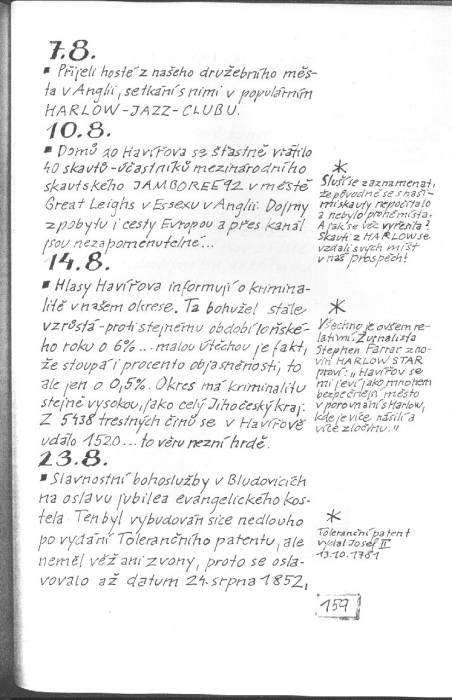 7.8.
▪ Přijeli hosté z našeho družebního měs-
ta v Anglii, setkání s nimi v populárním
HARLOW-JAZZ-CLUBU.
10.8.
▪ Domů do Havířova se šťastně vrátilo
40 skautů-účastníků mezinárodního
skautského JAMBOREE 92 v městě
Great Leighs v Essexu v Anglii. Dojmy
z pobytu i cesty Evropou a přes kanál
jsou nezapomenutelné...
14.8.
▪ Hlasy Havířova informují o krimina-
litě v našem okrese. Ta bohužel stále
vzrůstá-proti stejnému období loňské-
ho roku o 6%... malou útěchou je fakt,
že stoupá i procento objasněnosti, to
ale jen o 0,5%. Okres má kriminalitu
stejně vysokou, jako celý Jihočeský kraj.
Z 5438 trestných činů se v Havířově
událo 1520... to věru nezní hrdě.
23.8.
▪ Slavnostní bohoslužby v Bludovicích
na oslavu jubilea evangelického kos-
tela. Ten byl vybudován sice nedlouho
po vydání Tolerančního patentu, ale
neměl věž ani zvony, proto se osla-
vovalo až datum 24. srpna 1852,
*
Sluší se zaznamenat,
že původně se s naši-
mi skauty nepočítalo
a nebylo pro ně místa.
A jak se věc vyřešila?
Skauti z HARLOW se
vzdali svých míst
v náš prospěch!
*
Všechno je ovšem re-
lativní. Žurnalista
Stephen Farrar z no-
vin HARLOW STAR
praví: „Havířov se
mi jeví jako mnohem
bezpečnější město
v porovnání s Harlow,
kde je více násilí a
více zločinu."
*
Toleranční patent
vydal Josef II
13.10.1781
159